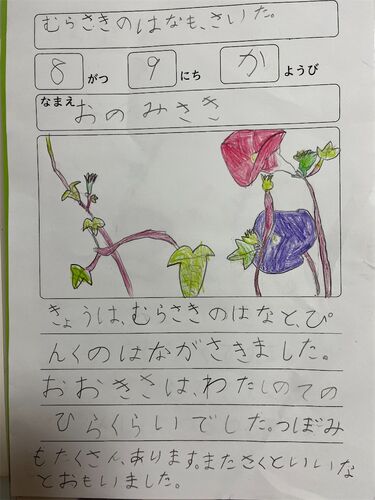 むらさきのはなも、さいた。
8 がつ 9 にち か ようび
なまえ おの みさき
きょうは、むらさきのはなと、ぴ
んくのはながさきました。
おおきさは、わたしのての
ひらくらいでした。つぼみ
もたくさん、あります。またさくといいな
とおもいました。